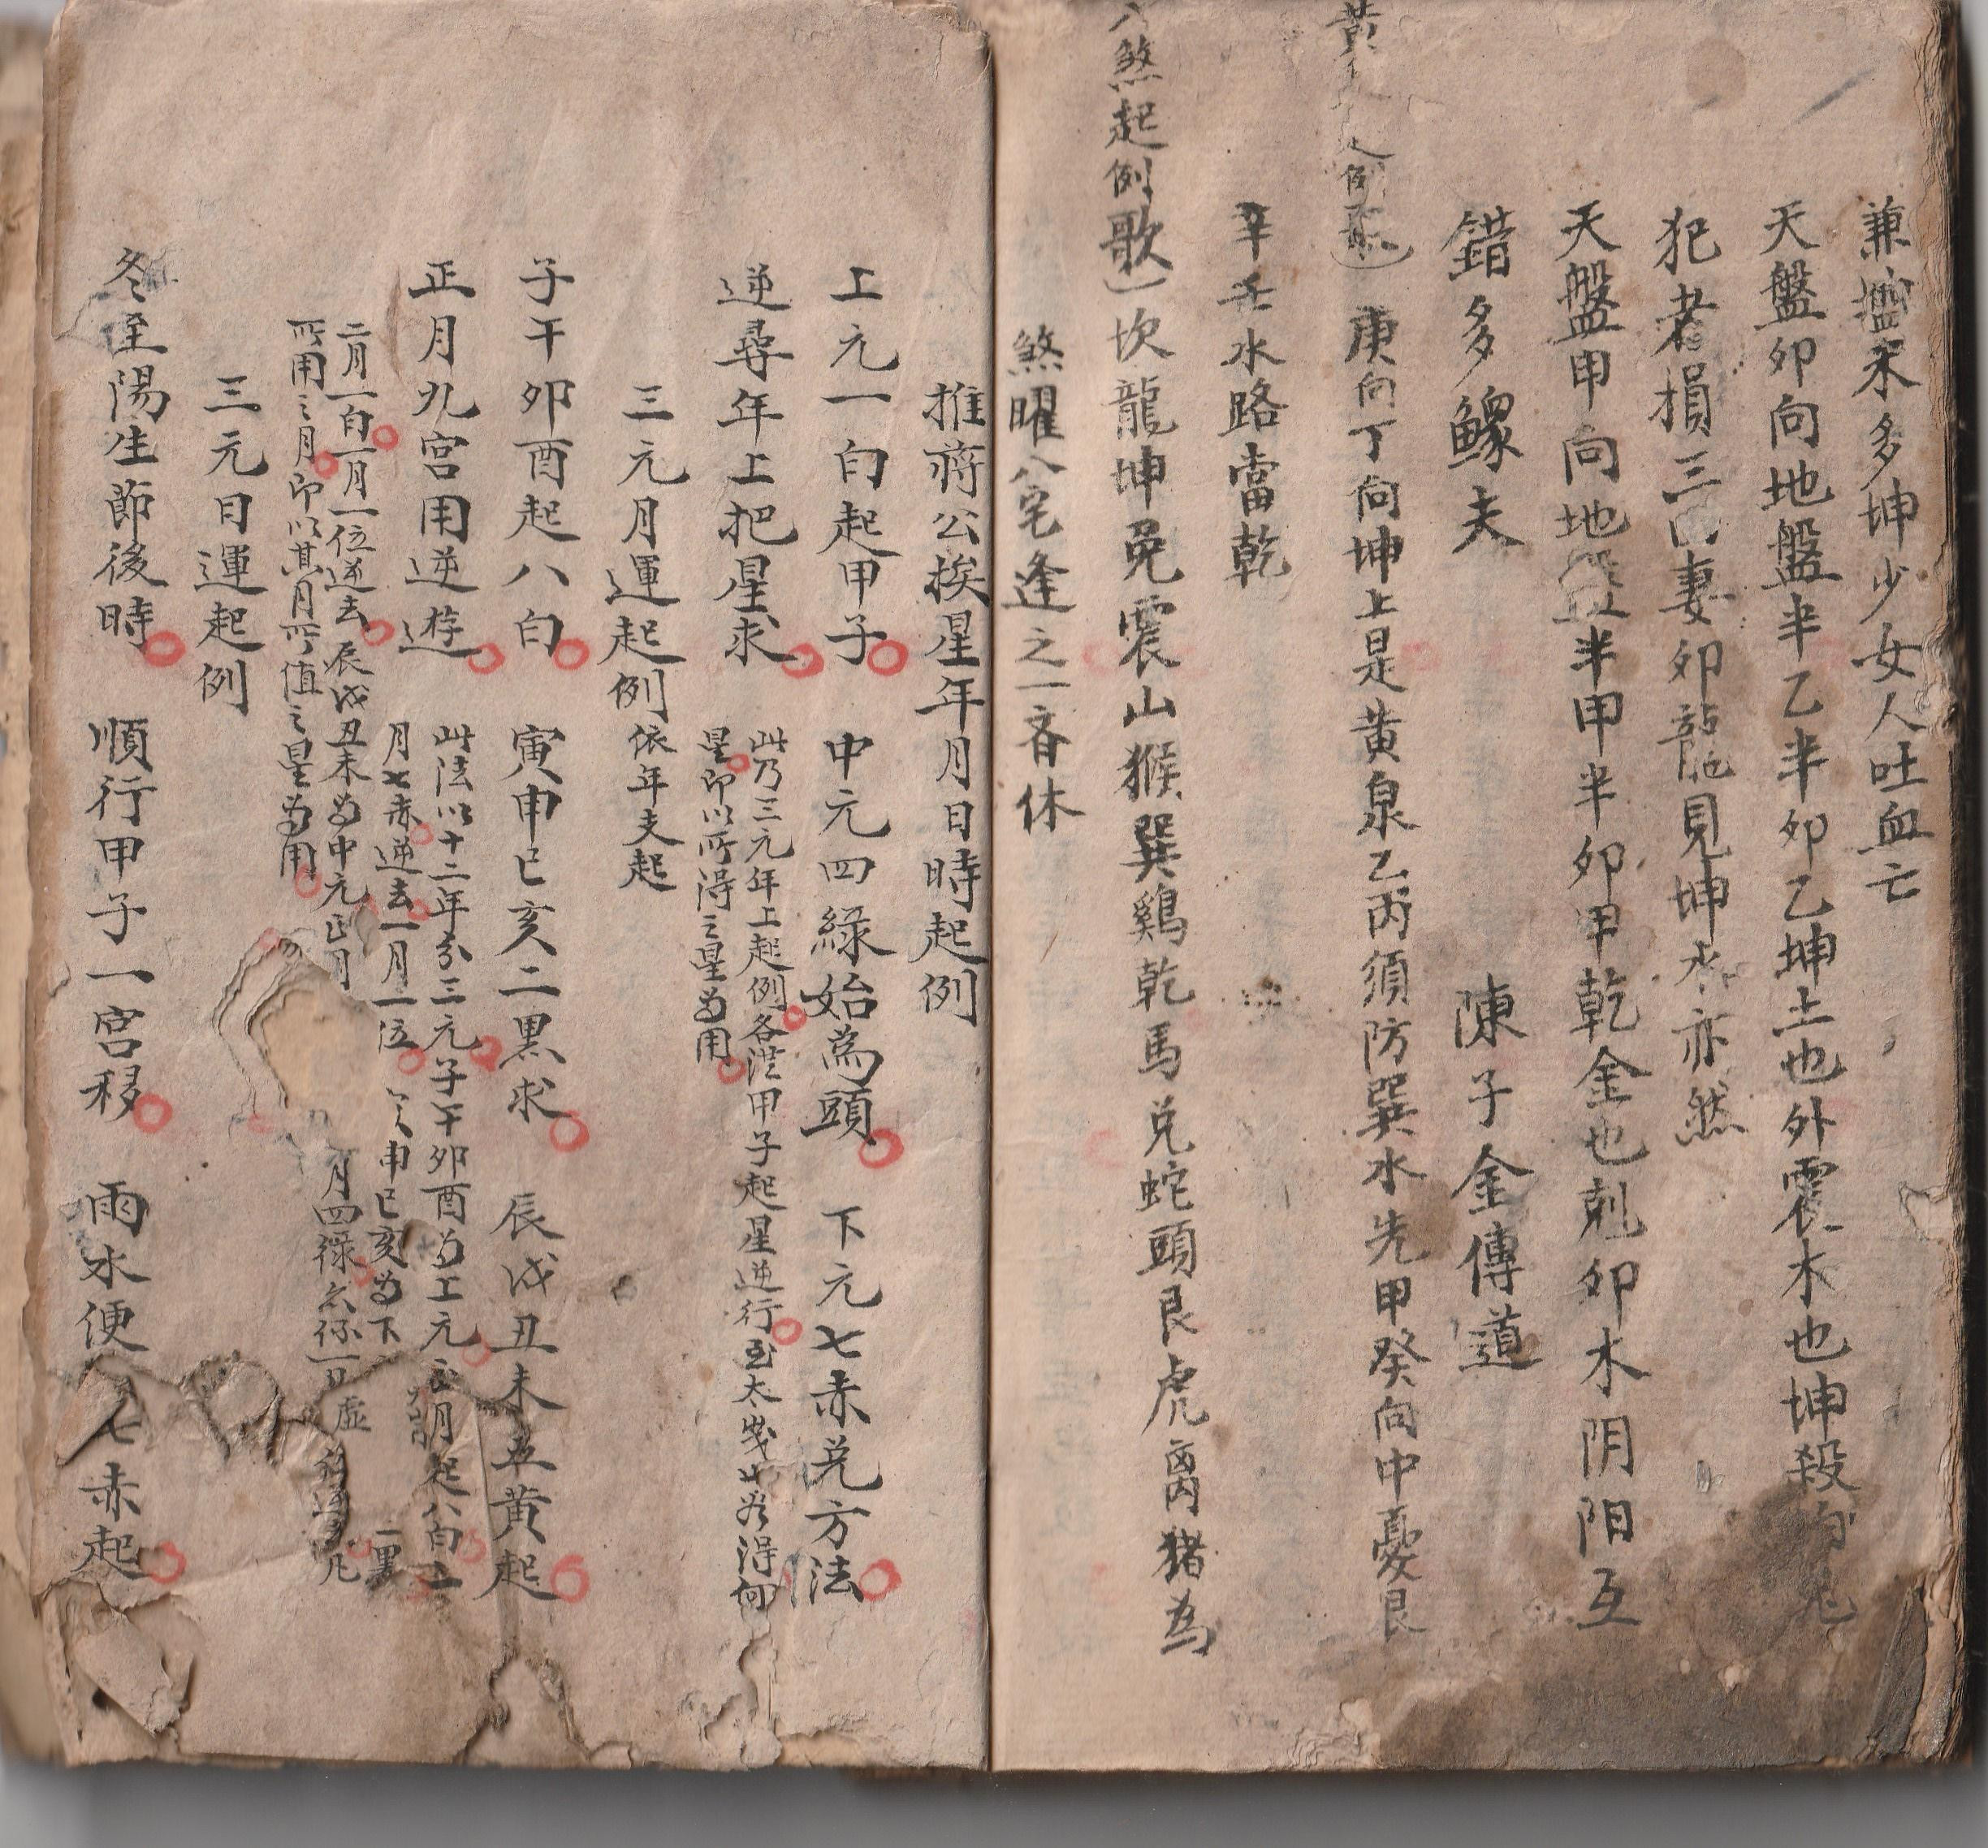 兼盤未多坤少女人吐血亡
天盤卯向地盤半乙半卯乙坤土也外震木也坤殺向
犯者損三妻卯龍見坤水亦然
天盤甲向地盤半甲半卯甲乾金也剋卯木阴阳互
錯多鰥夫 陳子金傳道
黄泉例歌 庚向丁向坤上是黄泉乙丙須防巽水先甲癸向中憂艮
辛壬水路當乾
八煞起例歌 坎龍坤兔震山猴巽鷄乾馬兑蛇頭艮虎离猪為
煞曜八宅逢之一齊休
推蔣公挨星年月日時起例
上元一白起甲子 中元四緑始為頭 下元七赤兑方法
逆尋年上把星求 此乃三元年上起例各從甲子起星逆行至太歲若得何
星即以所得之星为用
三元月運起例 依年支起
子午卯酉起八白 寅申巳亥二黑求 辰戌丑未五黄起
正月九宫用逆遊 此法以十二年分三元子午卯酉为上元正月起八白二
月七赤逆去一月一位 申巳亥为下 二黑
二月一白一月一位逆去辰戌丑未为中元正月 月四禄
所用之月即以其月所值之星为用
三元日運起例
冬至陽生節後時 順行甲子一宫移 雨水便 七赤起